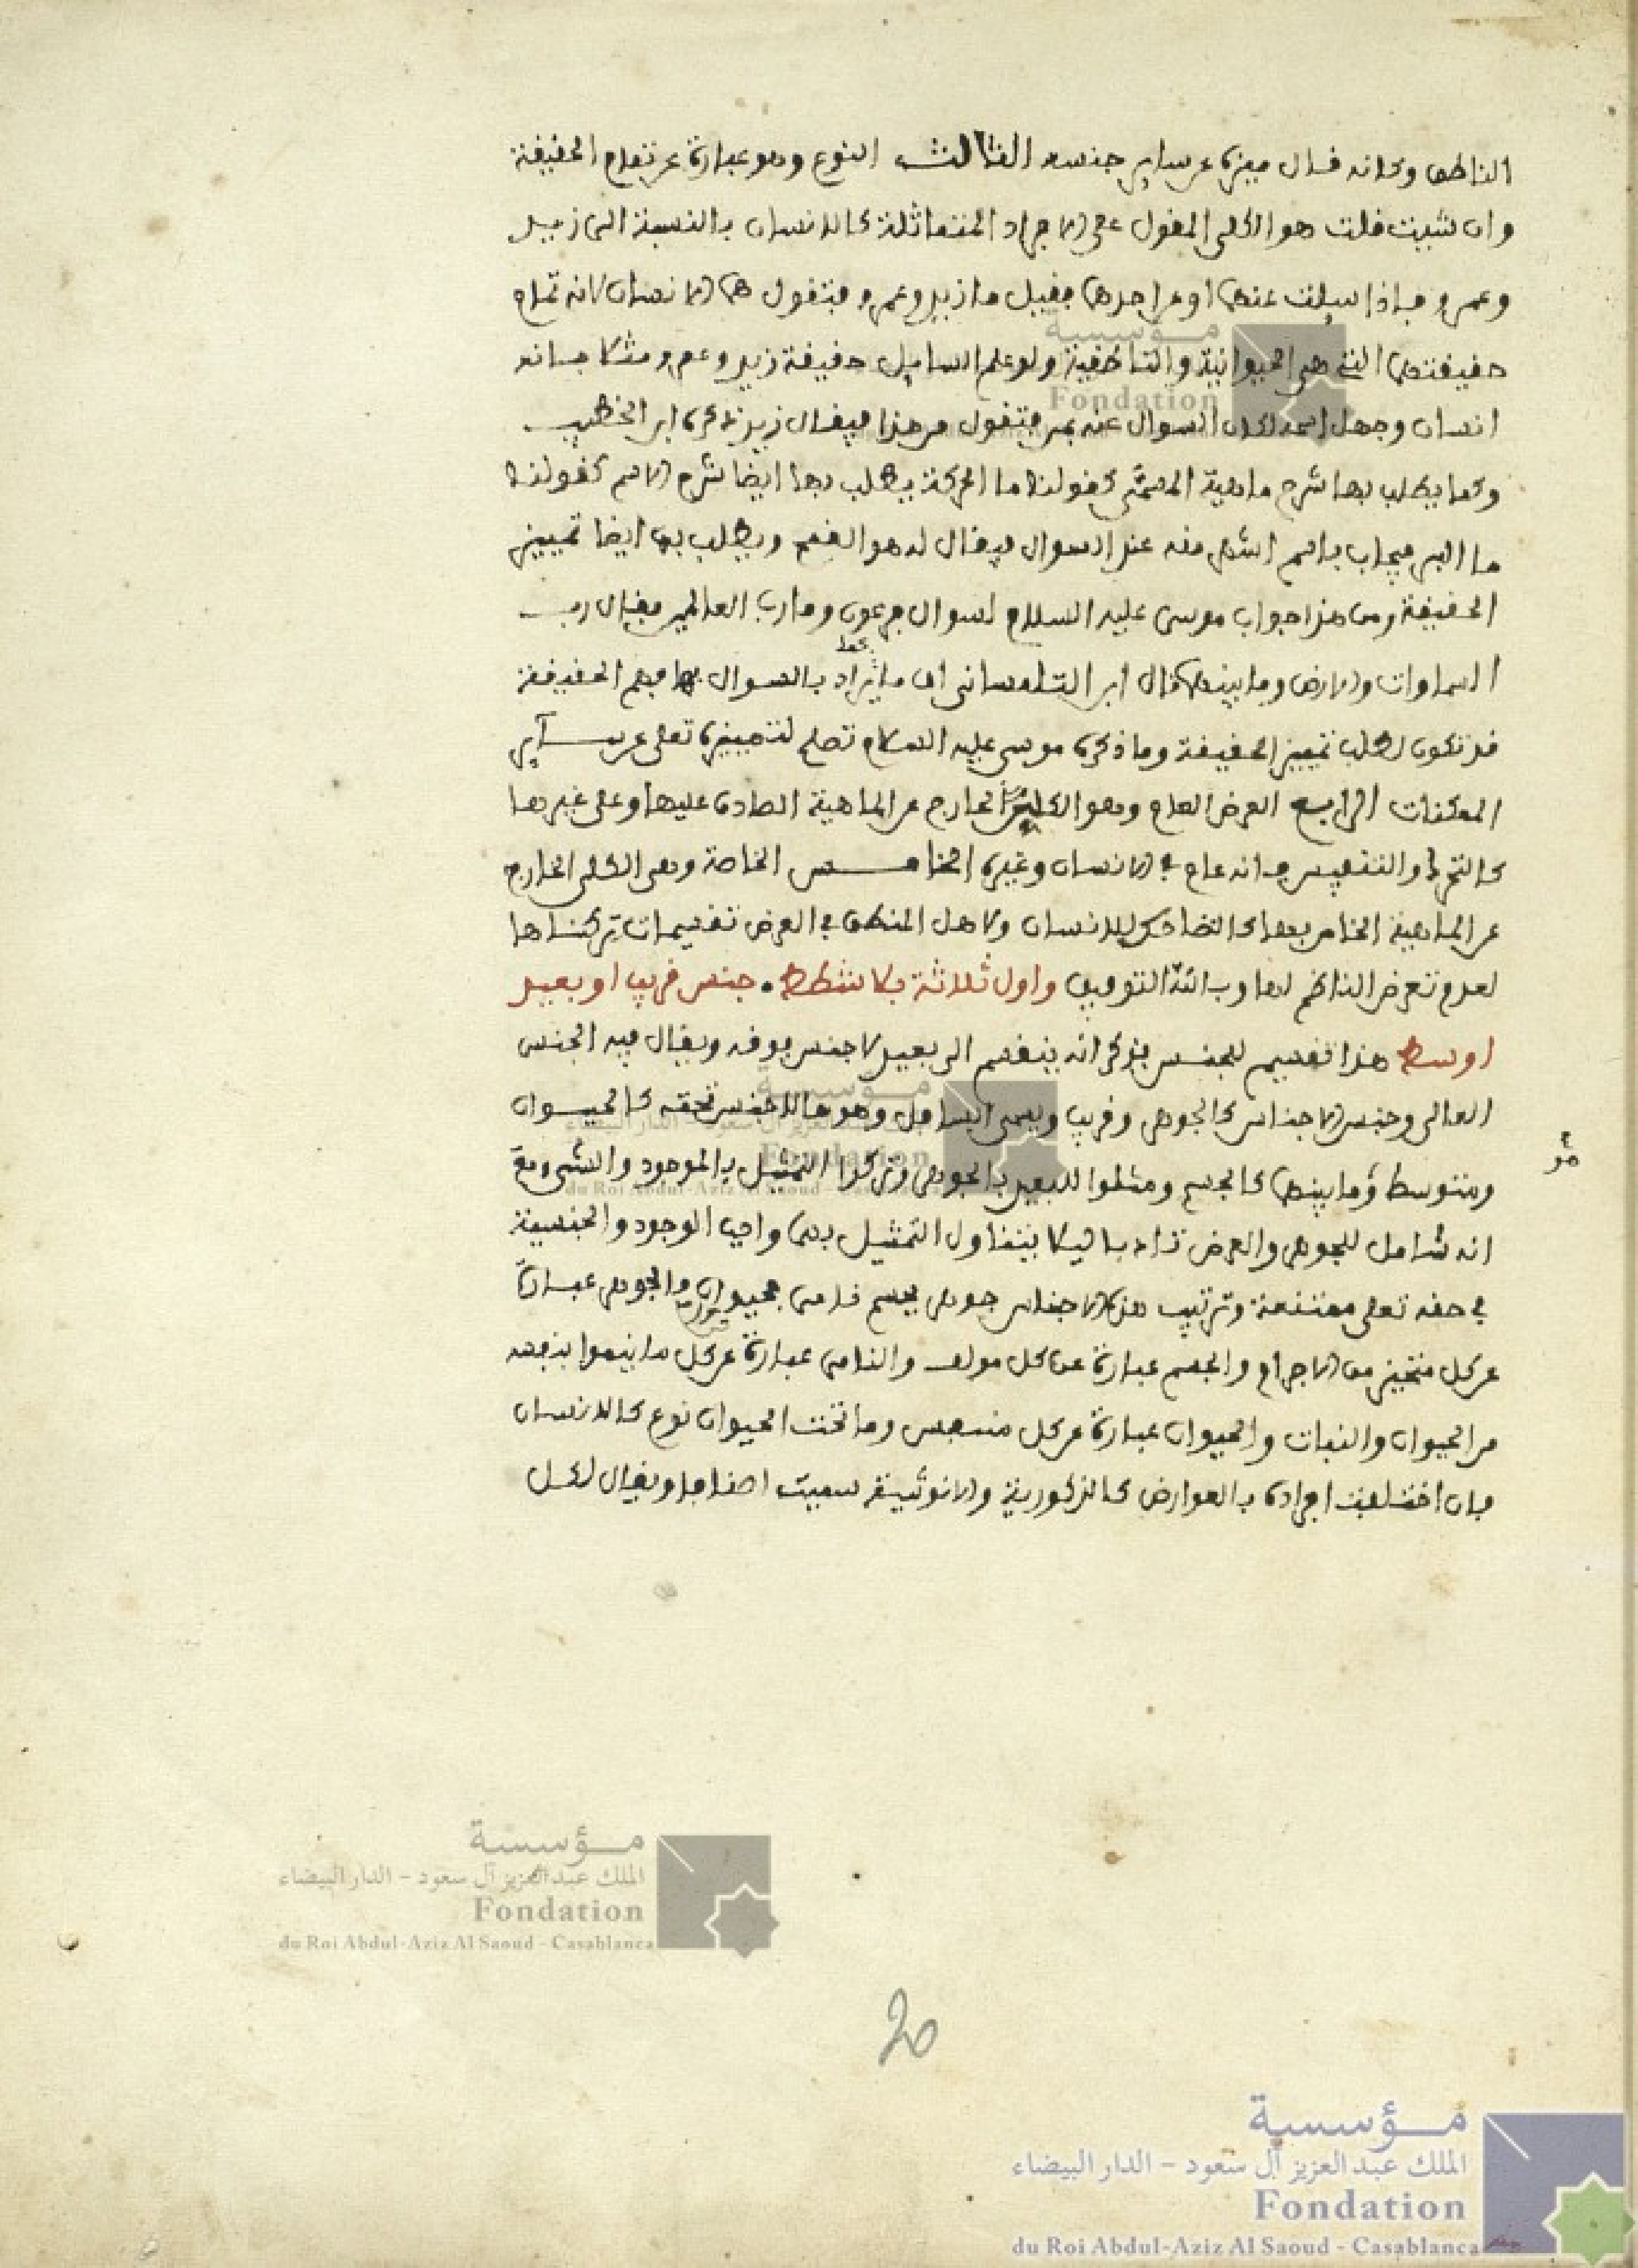 الناطق وكانه فال ميزه عن ساير جنسه الثالث النوع وهو عبارة عن تمام الحقيقة
وان شيت قلت هو الكلي المقول على الافراد المتماثلة كالانسان بالنسبة الى زيد
وعمرو فاذا سيلت عنهما او عن احدهما فقيل ما زيد وعمرو فتقول هما الانسان لانه تمام
حقيقتهما التي هي الحيوانية والناطقية ولو علم السايل حقيقة زيد وعمرو مثلا بانه
انسان وجهل اسمه لكان السوال عنه بمن فتقول من هذا فيقال زيد ذكره ابن الخطيب
وكما يطلب بها شرح ماهية المسمى كقولنا ما الحركة يطلب بها ايضا شرح الاسم كقولنا
ما البر فيجاب باسم اشهر منه عند السوال فيقال له هو القمح ويطلب بها ايضا تمييز
الحقيقة ومن هذا جواب موسى عليه السلام لسوال فرعون وما رب العالمين فقال رب
السماوات والارض وما بينهما قال ابن التلمساني اي ما يراد بالسوال بها فهم الحقيقة
فقط
قد تكون لطلب تمييز الحقيقة وما ذكره موسى عليه السلام تصلح لتمييزه تعلى عن ساير
الممكنات الرابع العرض العام وهو الكلي الخارج عن الماهية الصادق عليها وعلى غيرها
كالتحرك والتنفس فانه عام في الانسان وغيره الخامس الخاصة وهي الكلي الخارج
عن الماهية الخاص بها كالضاحك للانسان ولاهل المنطق في العرض تقسيمات تركناها
لعدم تعرض الناظم لها وبالله التوفيق واول ثلاثة بلا شطط . جنس قريب او بعيد
او وسط هذا تقسيم للجنس فذكر انه ينقسم الى بعيد لا جنس فوقه ويقال فيه الجنس
العالي وجنس الاجناس كالجوهر وقريب ويسمى السافل وهو ما لا جنس تحته كالحيوان
ومتوسط وما بينهما كالجسم ومثلوا للبعيد بالجوهر وتركوا التمثيل بالموجود والشيء مع
انه شامل للجوهر والعرض تادبا ليلا يتناول التمثيل بهما واجب الوجود والجنسية
في حقه تعلى ممتنعة وترتيب هذه الاجناس جوهر فجسم فنامي فحيوان والجوهر عبارة
عن كل متحيز من الاجرام والجسم عبارة عن كل مولف والنامي عبارة عن كل ما ينموا بنفسه
من الحيوان والنبات والحيوان عبارة عن كل متنفس وما تحت الحيوان نوع كالانسان
فان اختلفت افراده بالعوارض كالذكورية والانوثية سميت اصنافا ويقال لكل
20
مؤسسة
الملك عبد العزيز آل سعود - الدار البيضاء
Fondation
du Roi Abdul-Aziz Al Saoud - Casablanca